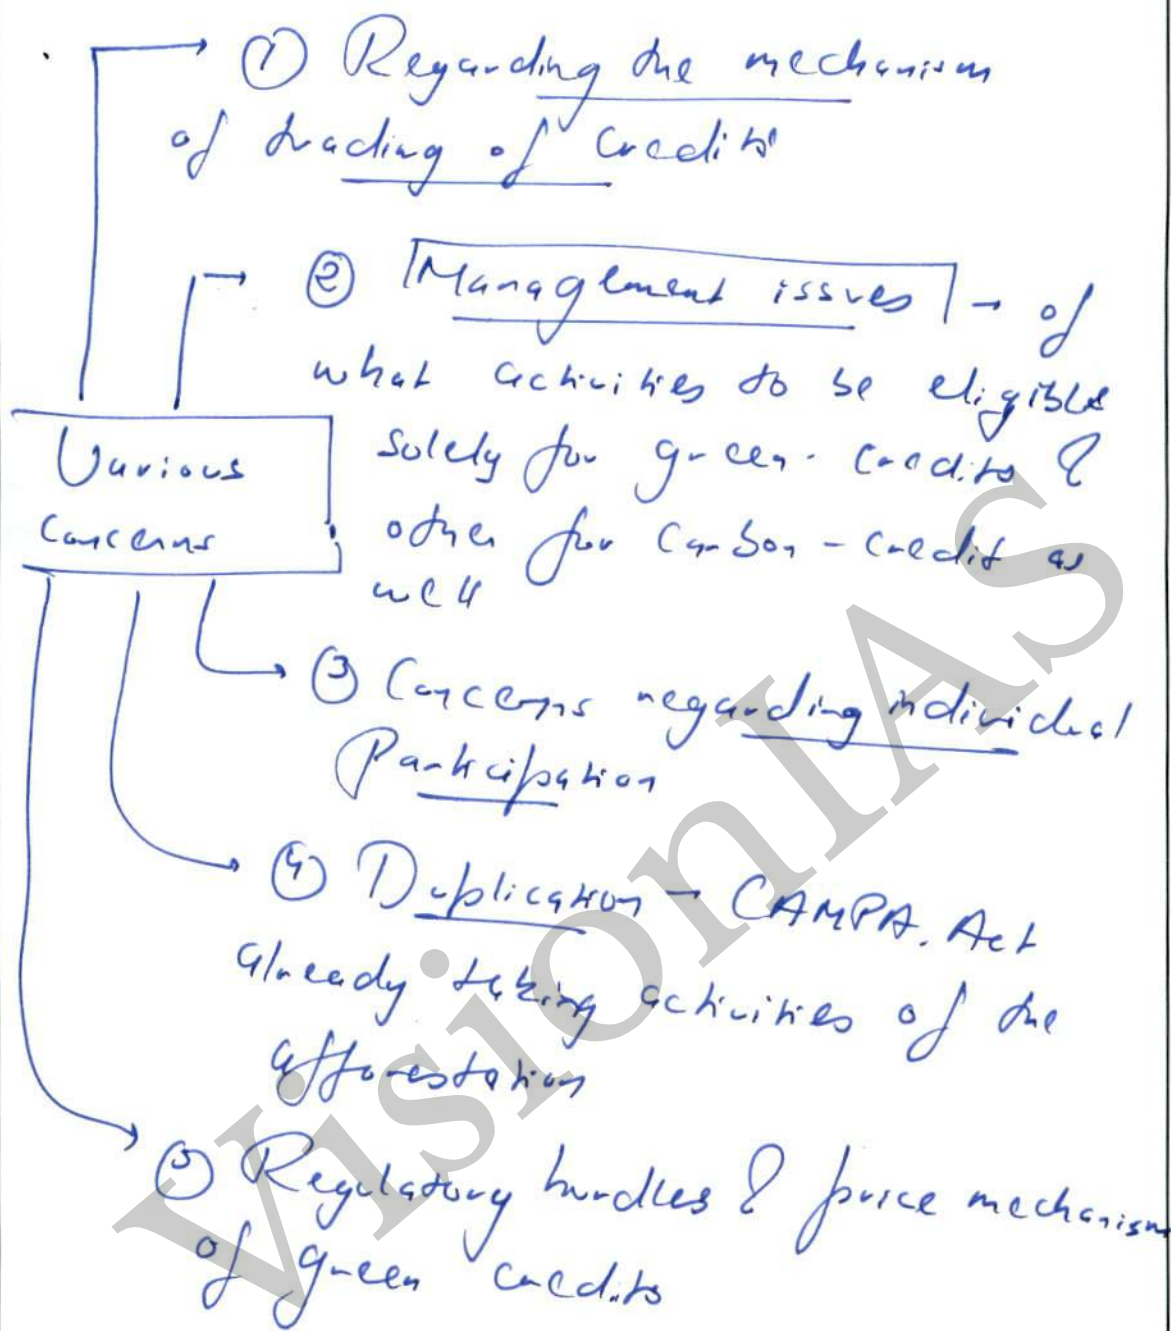 ① Regarding the mechanism
of trading of credits
② Management issues → of
what activities to be eligible
solely for green-credits &
other for carbon-credit as
well
Various
concerns
③ Concerns regarding individual
Participation
④ Duplication - CAMPA Act
already taking activities of the
afforestation
⑤ Regulatory hurdles & price mechanism
of green credits
VisionIAS